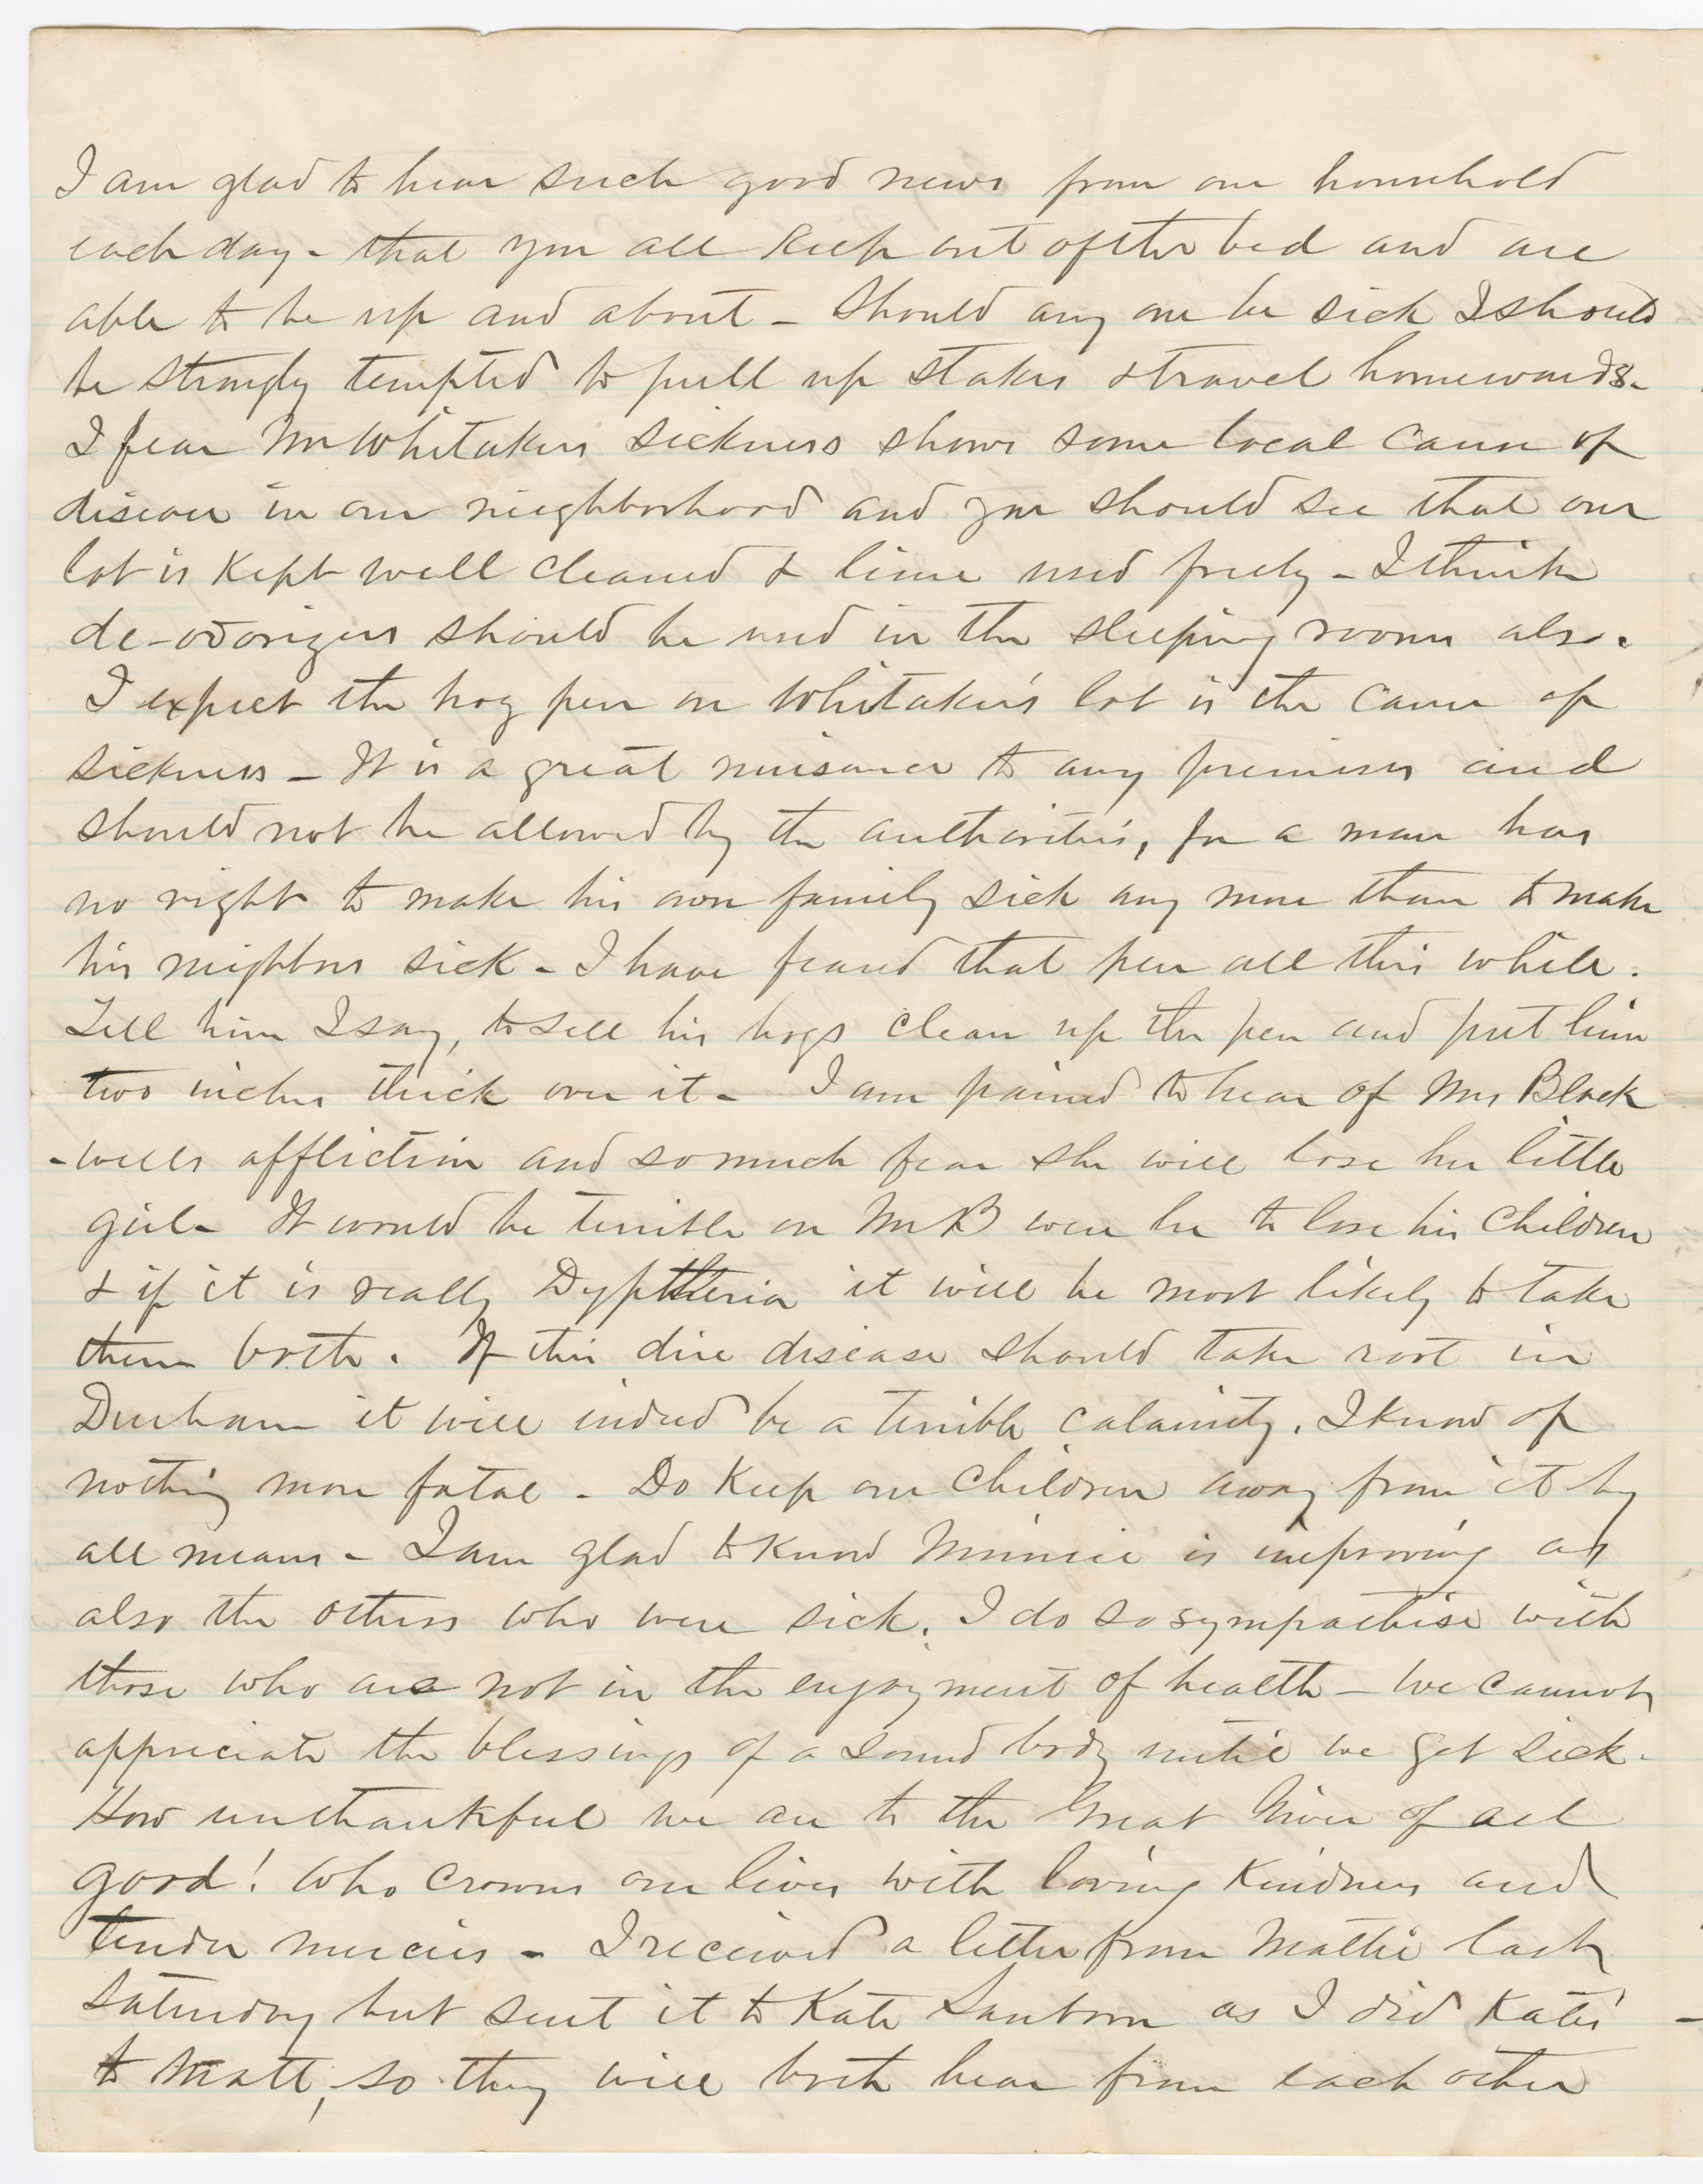 I am glad to hear such good news from our household
each day - that you all keep out of the bed and are
able to be up and about - Should any one be sick I should
be strongly tempted to pull up stakes & travel homewards -
I fear Mr Whitakers sickness shows some local cause of
disease in our neighborhood and you should see that our
lot is kept well cleaned & lime used freely - I think
de-odorizers should be used in the sleeping rooms also.
I expect the hog pen on Whitaker's lot is the cause of
sickness - It is a great nuisance to any premises and
should not be allowed by the authorities, for a man has
no right to make his own family sick any more than to make
his neighbors sick - I have feared that pen all this while.
Tell him I say, to sell his hogs clean up the pen and put lime
two inches thick over it - I am pained to hear of Mrs Black
-wells affliction and so much fear she will lose her little
girl - It would be terrible on Mr B were he to lose his children
& if it is really Dyptheria it will be most likely to take
them both. If this dire disease should take root in
Durham it will indeed be a terrible calamity. I know of
nothing more fatal - Do keep our children away from it by
all means - I am glad to know Minnie is improving as
also the others who were sick. I do so sympathise with
those who are not in the enjoyment of health - We cannot
appreciate the blessings of a sound body until we get sick -
How unthankful we are to the Great Giver of all
good! Who crowns our lives with loving kindness and
tender mercies - I received a letter from Mattie last
Saturday but sent it to Kate Sanborn as I did Kates'
to Matt, so they will both hear from each other